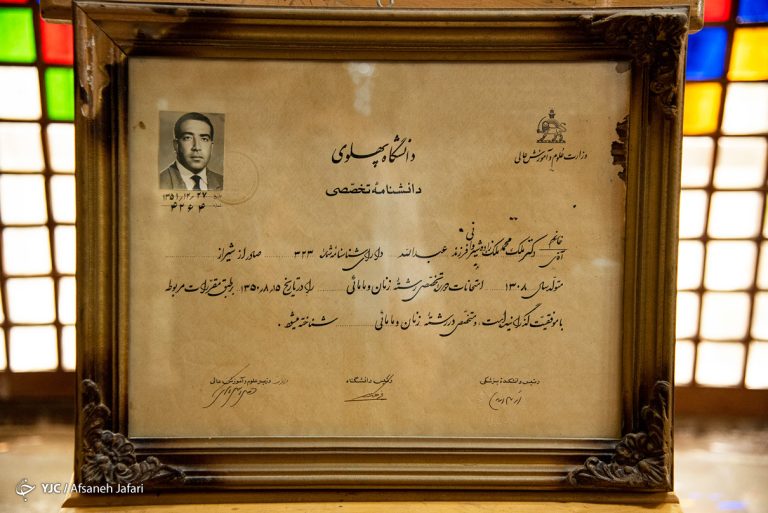 وزارت علوم و آموزش عالی
دانشگاه پهلوی
دانشنامهٔ تخصصی
تاریخ ۱۳۵۱/۱۲/۲۷
شماره ۴۲۶۴
خانم
آقای دکتر ملک محمد ملک زاده شیروانی فرزند عبدالله دارای شناسنامه شماره ۳۲۳ صادر از شیراز
متولد سال ۱۳۰۸ امتحانات دوره تخصصی رشتهٔ زنان و مامائی را در تاریخ ۱۳۵۰،۸،۱۵ برطبق مقررات مربوط
با موفقیت گذرانیده است، و متخصص در رشتهٔ زنان و مامائی شناخته میشود.
رئیس دانشکدهٔ پزشکی
رئیس دانشگاه
وزیر علوم و آموزش عالی
YJC / Afsaneh Jafari